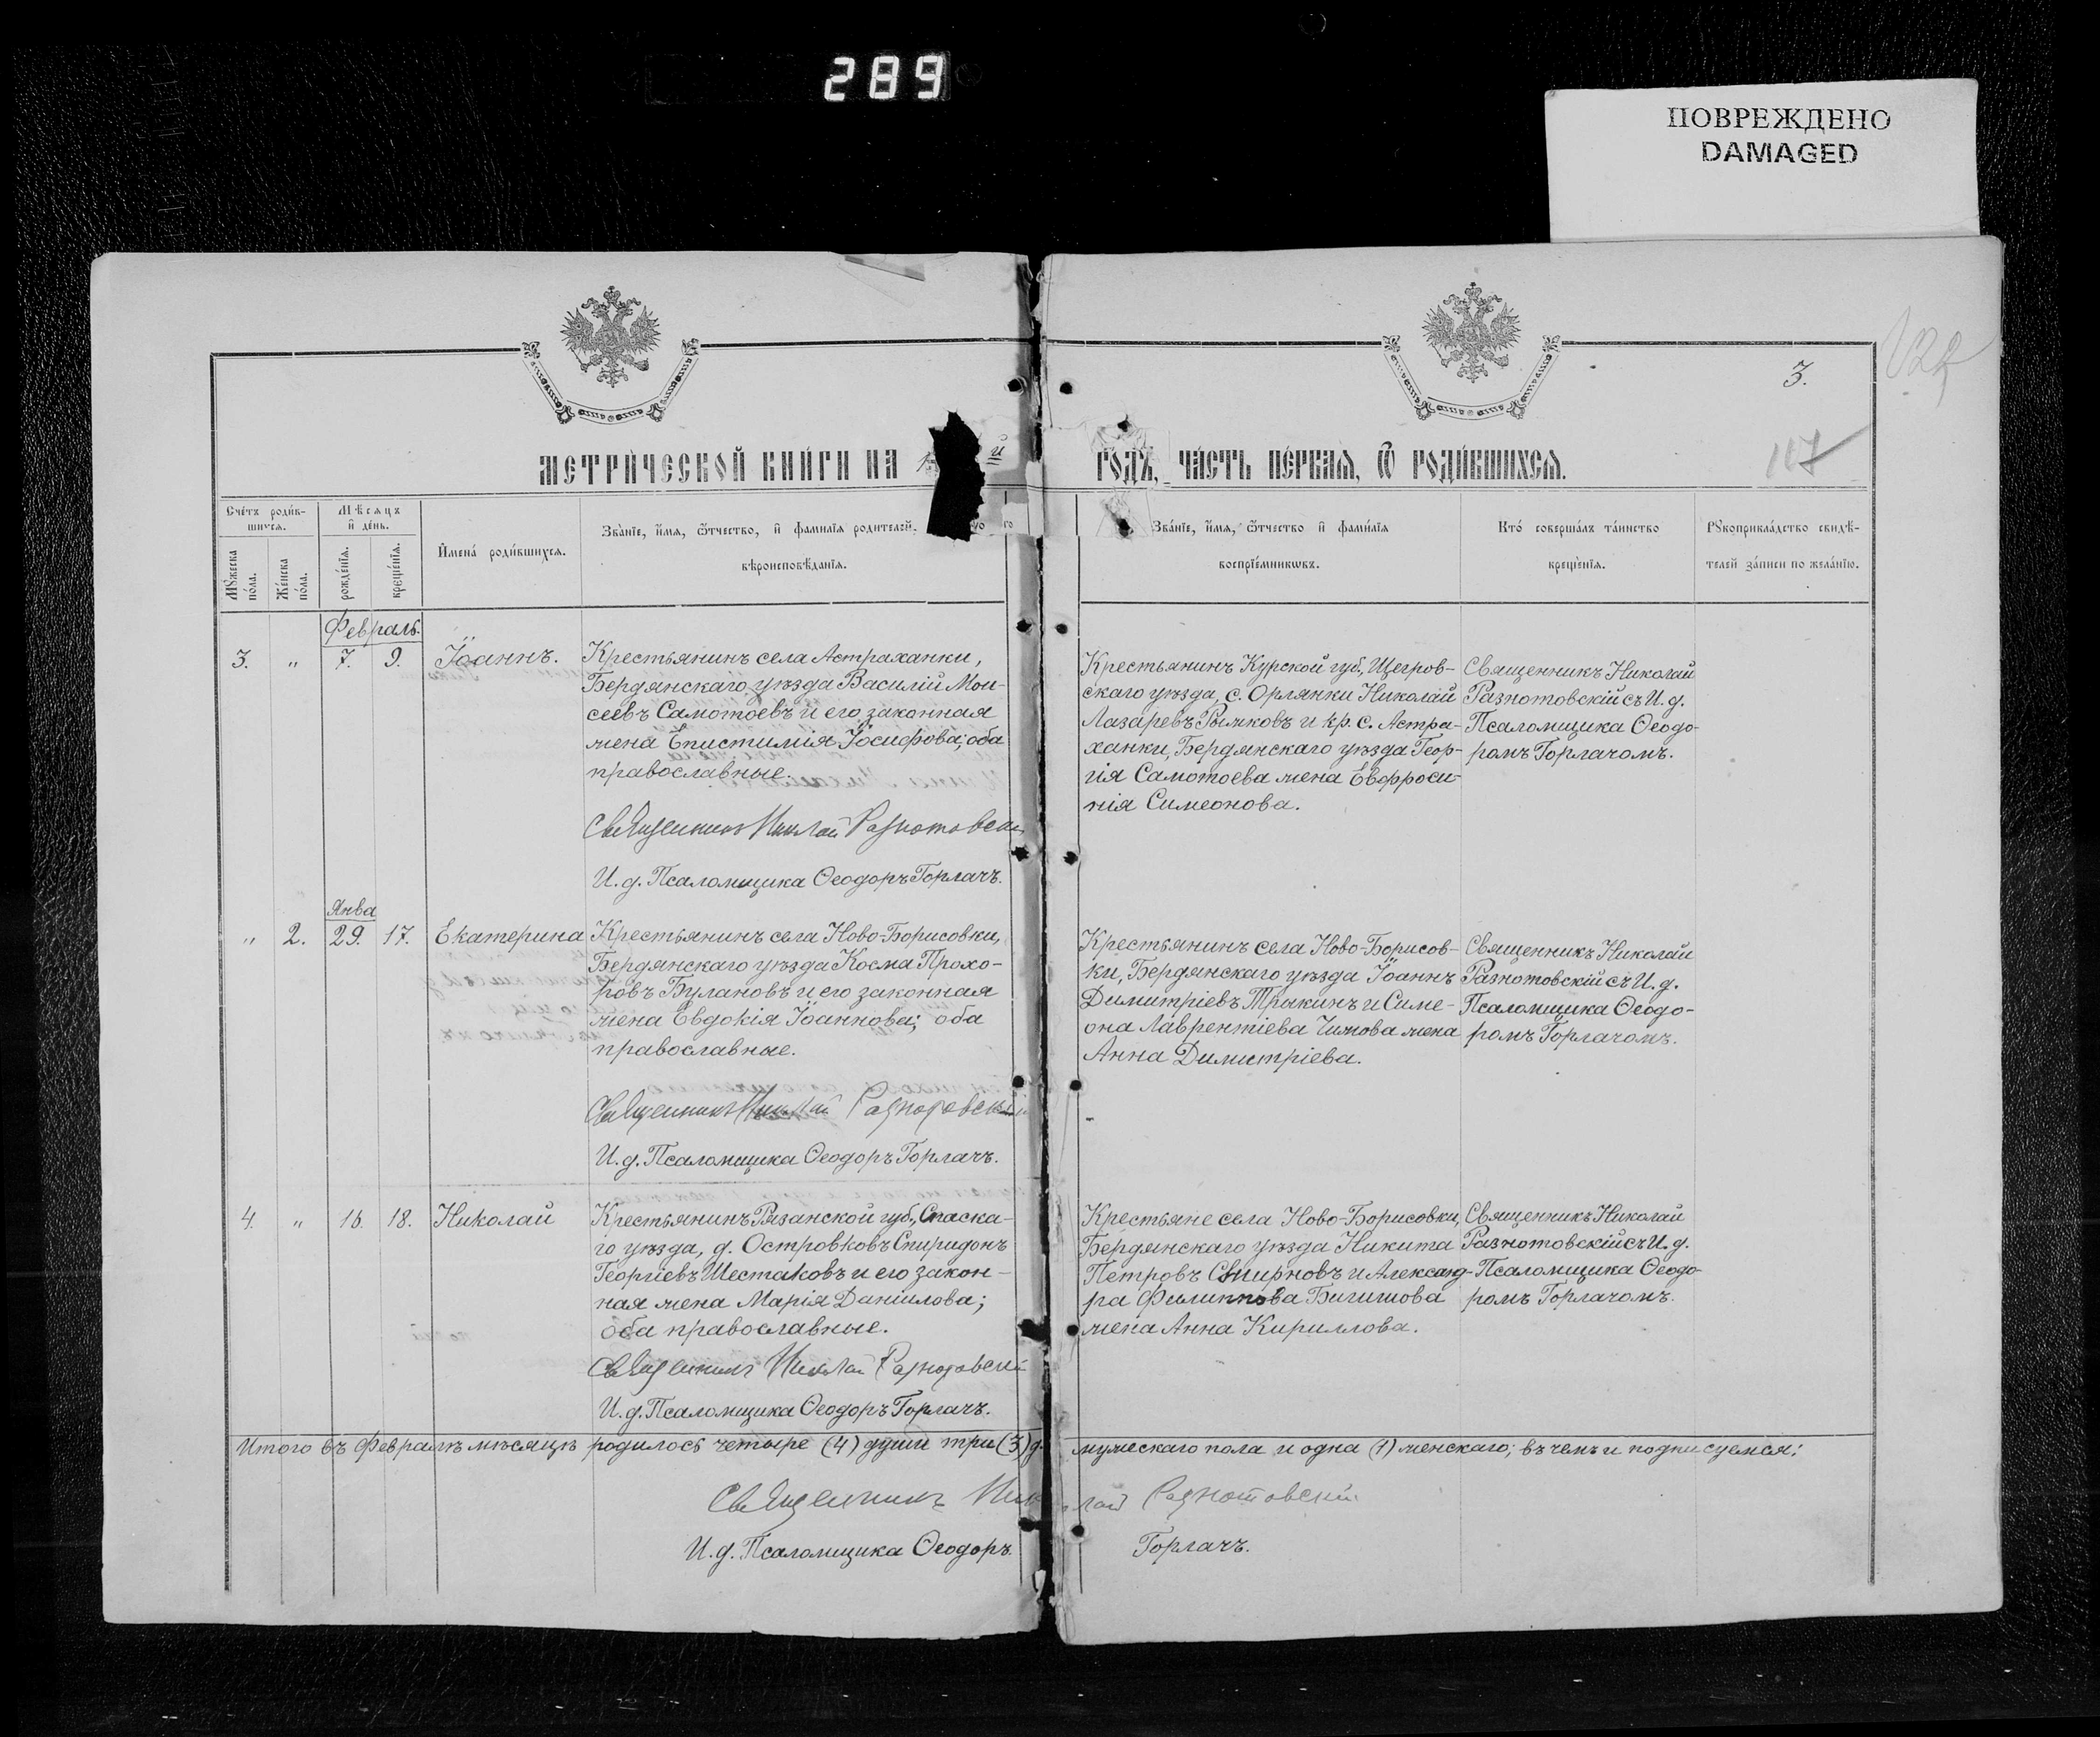 289
ПОВРЕЖДЕНО
DAMAGED
3.
117
МЕТРИЧЕСКОЙ КНИГИ НА
й
ГОДЪ, ЧАСТЬ ПЕРВАЯ, Ѡ РОДИВШИХСЯ.
Счетъ родившихся.
Мѣсяцъ и день.
Мꙋжеска пола.
Женска пола.
рожденїя.
крещенїя.
Имена родившихся.
Званїе, имя, ѿчество, и фамилїя родителей,
вѣроисповѣданїя.
Званїе, имя, ѿчество и фамилїя
воспрїемникωвъ.
Кто совершалъ таинство
крещенїя.
Рꙋкоприкладство свидѣ-
телей записи по желанїю.
Февраль.
3.
"
7.
9.
Іоаннъ.
Крестьянинъ села Астраханки,
Бердянскаго уѣзда Василій Мои-
сеевъ Самотоевъ и его законная
жена Епистимія Іосифова; оба
православные.
Священникъ Николай Разнотовскі
И. д. Псаломщика Ѳеодоръ Горлачъ.
Крестьянинъ Курской губ., Щегров-
скаго уѣзда, с. Орлянки Николай
Лазаревъ Рыжковъ и кр. с. Астра-
ханки, Бердянскаго уѣзда Геор-
гія Самотоева жена Евфроси-
нія Симеонова.
Священникъ Николай
Разнотовскій съ И. д.
Псаломщика Ѳеодо-
ромъ Горлачомъ.
Янва
"
2.
29.
17.
Екатерина
Крестьянинъ села Ново-Борисовки,
Бердянскаго уѣзда Косма Прохо-
ровъ Булановъ и его законная
жена Евдокія Іоаннова; оба
православные.
Священникъ Николай Разнотовскій
И. д. Псаломщика Ѳеодоръ Горлачъ.
Крестьянинъ села Ново-Борисов-
ки, Бердянскаго уѣзда Іоаннъ
Димитріевъ Трыкинъ и Симе-
она Лаврентіева Чижова жена
Анна Димитріева.
Священникъ Николай
Разнотовскій съ И. д.
Псаломщика Ѳеодо-
ромъ Горлачомъ.
4.
"
16.
18.
Николай
Крестьянинъ Рязанской губ., Спаска-
го уѣзда, д. Островковъ Спиридонъ
Георгіевъ Шестаковъ и его закон-
ная жена Марія Даніилова;
оба православные.
Священникъ Николай Разнотовскій
И. д. Псаломщика Ѳеодоръ Горлачъ.
Крестьяне села Ново-Борисовки,
Бердянскаго уѣзда Никита
Петровъ Смирновъ и Александ-
ра Филиппова жена Анна Кириллова.
Священникъ Николай
Разнотовскій съ И. д.
Псаломщика Ѳеодо-
ромъ Горлачомъ.
Итого въ Февралѣ мѣсяцѣ родилось четыре (4) души три (3) д. мужескаго пола и одна (1) женскаго; въ чемъ и подписуемся:
Священникъ Николай Разнотовскій
И. д. Псаломщика Ѳеодоръ Горлачъ.